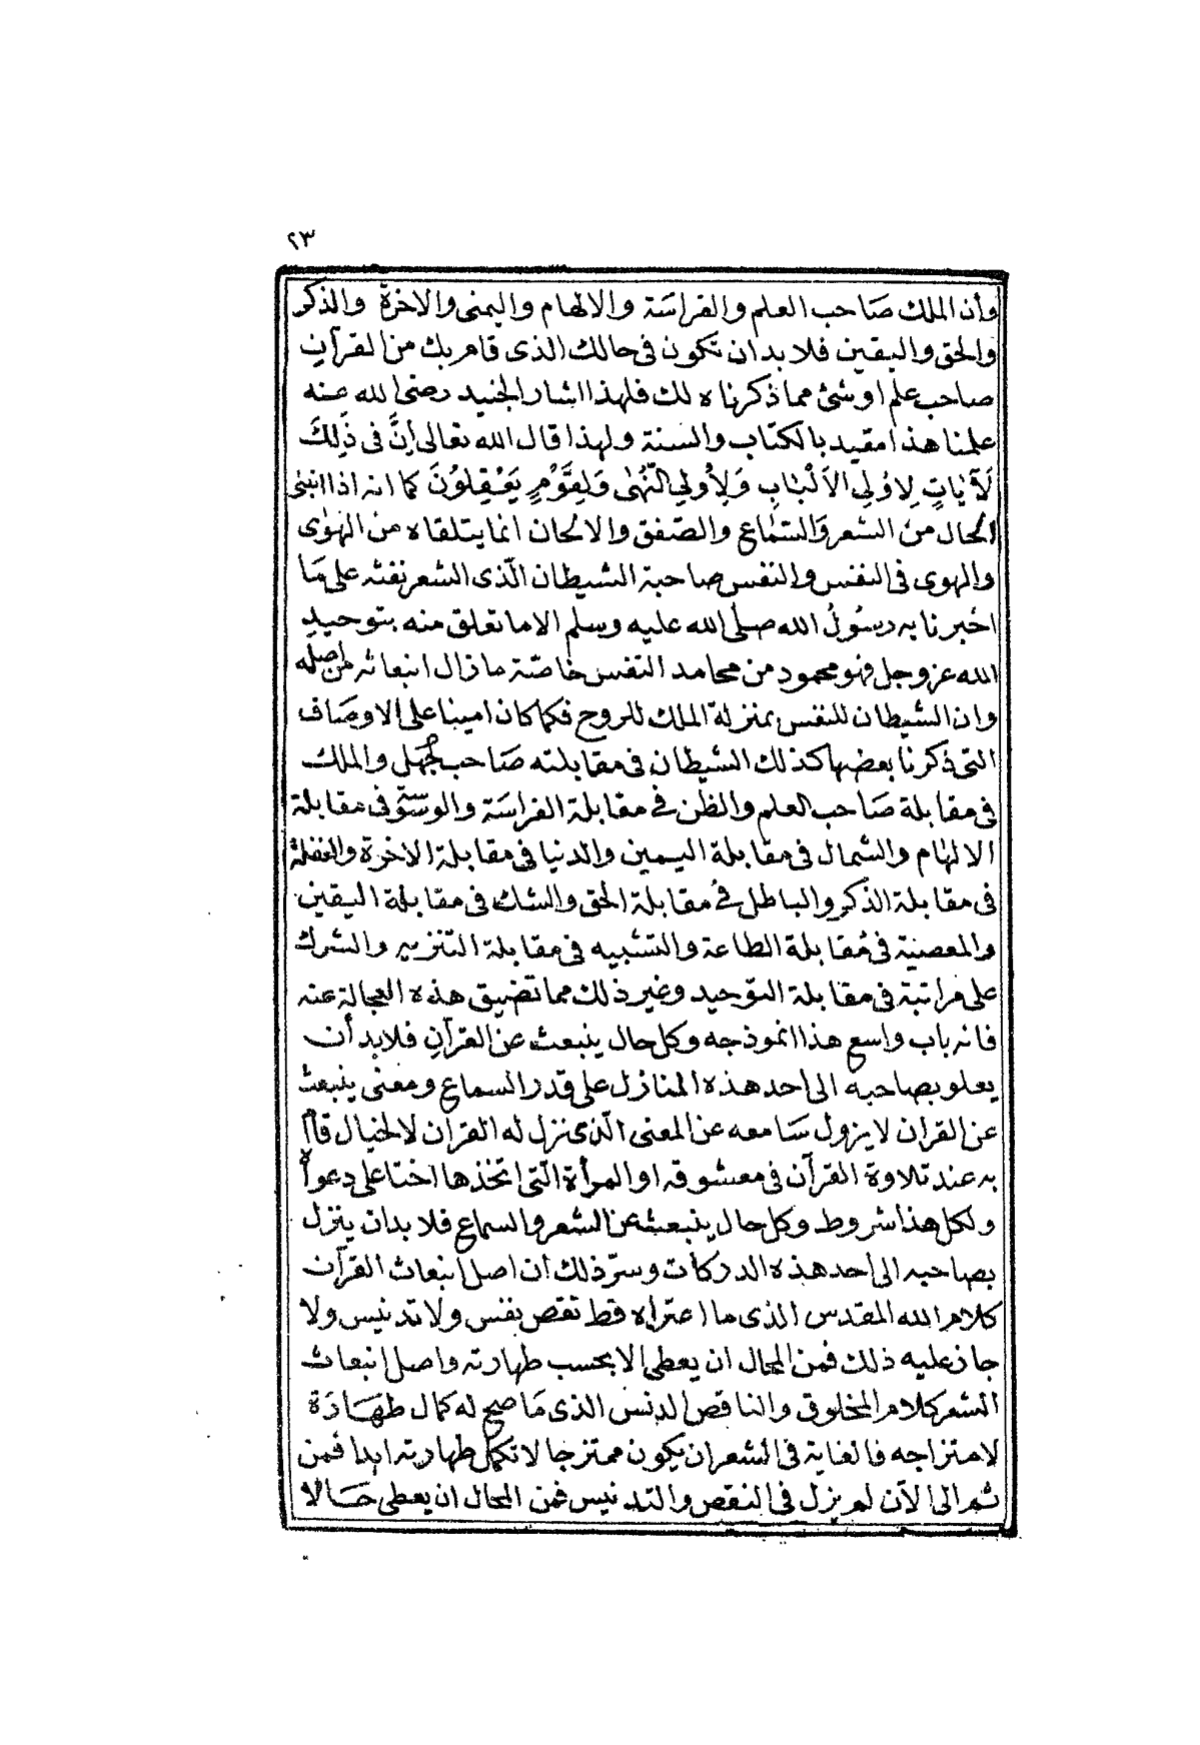 ٢٣
وأن الملك صَاحب العلم والفراسَة والالهام واليمنى والاخرة والذكر
والحق واليقين فلا بد ان تكون فى حالك الذى قام بك من القرآنِ
صاحب علم او شئ مما ذكرناه لك فلهذا اشار الجنيد رضى الله عنه
علمنا هذا مقيد بالكتاب والسنة ولهذا قال الله تعالى إنَّ فى ذَلِكَ
لَآيَاتٍ لِاوُلِي الاَلْبَابِ وَلِأُولي النُّهٰى وَلِقَوْمٍ يَعْقِلُونَ كما انه اذا انبنى
الحال من الشعر وَالسَّمَاع والصّفق والالحان انما يتلقاه من الهوٰى
والهوى فى النفس والنفس صاحبة الشيطان الّذى الشعر نفثه على مَا
اخبرنا به رسُولُ الله صلى الله عليه وسلم الا ما تعلق منه بتوحيدِ
الله عز وجل فهو محمود من محامد النفس خاصّة ما زال انبعاثه من اصله
وان الشيطان للنفس بمنزلة الملك للروح فكما كان امينا على الاوصَاف
التى ذكرنا بعضها كذلك الشيطان فى مقابلته صَاحب جَهل والملك
فى مقابلة صَاحب العلم والظن فى مقابلة الفراسَة والوسوسة فى مقابلة
الالهام والشمال فى مقابلة اليمين والدنيا فى مقابلة الاخرة والغفلة
فى مقابلة الذكر والباطل فى مقابلة الحق والشك فى مقابلة اليقين
والمعصية فى مُقابلة الطاعة والتشبيه فى مقابلة التنزيه والشرك
على مراتبة فى مقابلة التوحيد وغير ذلك مما تضيق هذه العجالة عنه
فانه باب واسع هذا انموذجه وكل حال ينبعث عن القرآنِ فلابد أن
يعلو بصاحبه الى احد هذه المنازل على قدر السماع ومعنى ينبعث
عن القران لا يزول سَامعه عن المعنى الّذى نزل له القران لا لخيال قام
به عند تلاوة القرآن فى معشوقه او المرأة الّتى اتخذها اختا على دعواه
ولكل هذا شروط وكل حال ينبعث عن الشعر والسماع فلا بد ان ينزل
بصاحبه الى احد هذه الدركات وسرّ ذلك ان اصل انبعاث القرآن
كلام الله المقدس الذى ما اعتراه قط نقص بنفس ولا تدنيس ولا
جاز عليه ذلك فمن المحال ان يعطى الا بحسب طهارته واصل انبعاث
الشعر كلام المخلوق والناقص الدنس الذى مَا صح له كمال طهَارَة
لامتزاجه فالغاية فى الشعر ان يكون ممتزجا لا تكمل طهارته ابدا فمن
ثم الى الآن لم يزل فى النقص والتدنيس فمن المحال ان يعطى حَالا